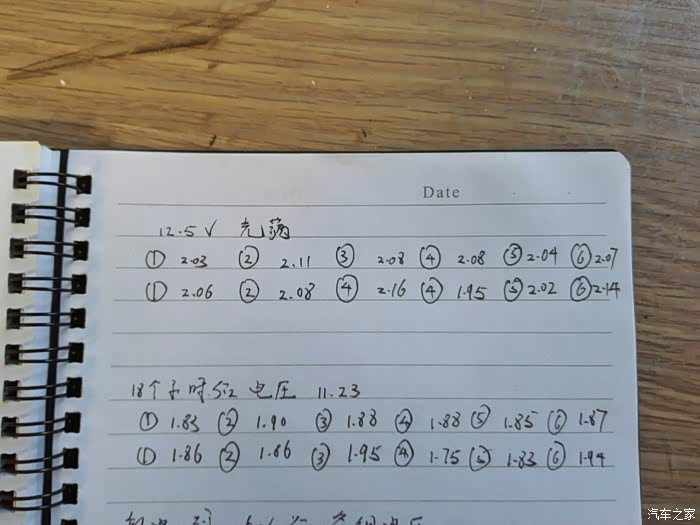 Date
12.5V 充满
① 2.03 ② 2.11 ③ 2.08 ④ 2.08 ⑤ 2.04 ⑥ 2.07
① 2.06 ② 2.08 ④ 2.16 ④ 1.95 ⑤ 2.02 ⑥ 2.14
18个小时后 电压 11.23
① 1.83 ② 1.90 ③ 1.88 ④ 1.88 ⑤ 1.85 ⑥ 1.87
① 1.86 ② 1.86 ③ 1.95 ④ 1.75 ⑤ 1.83 ⑥ 1.94
汽车之家